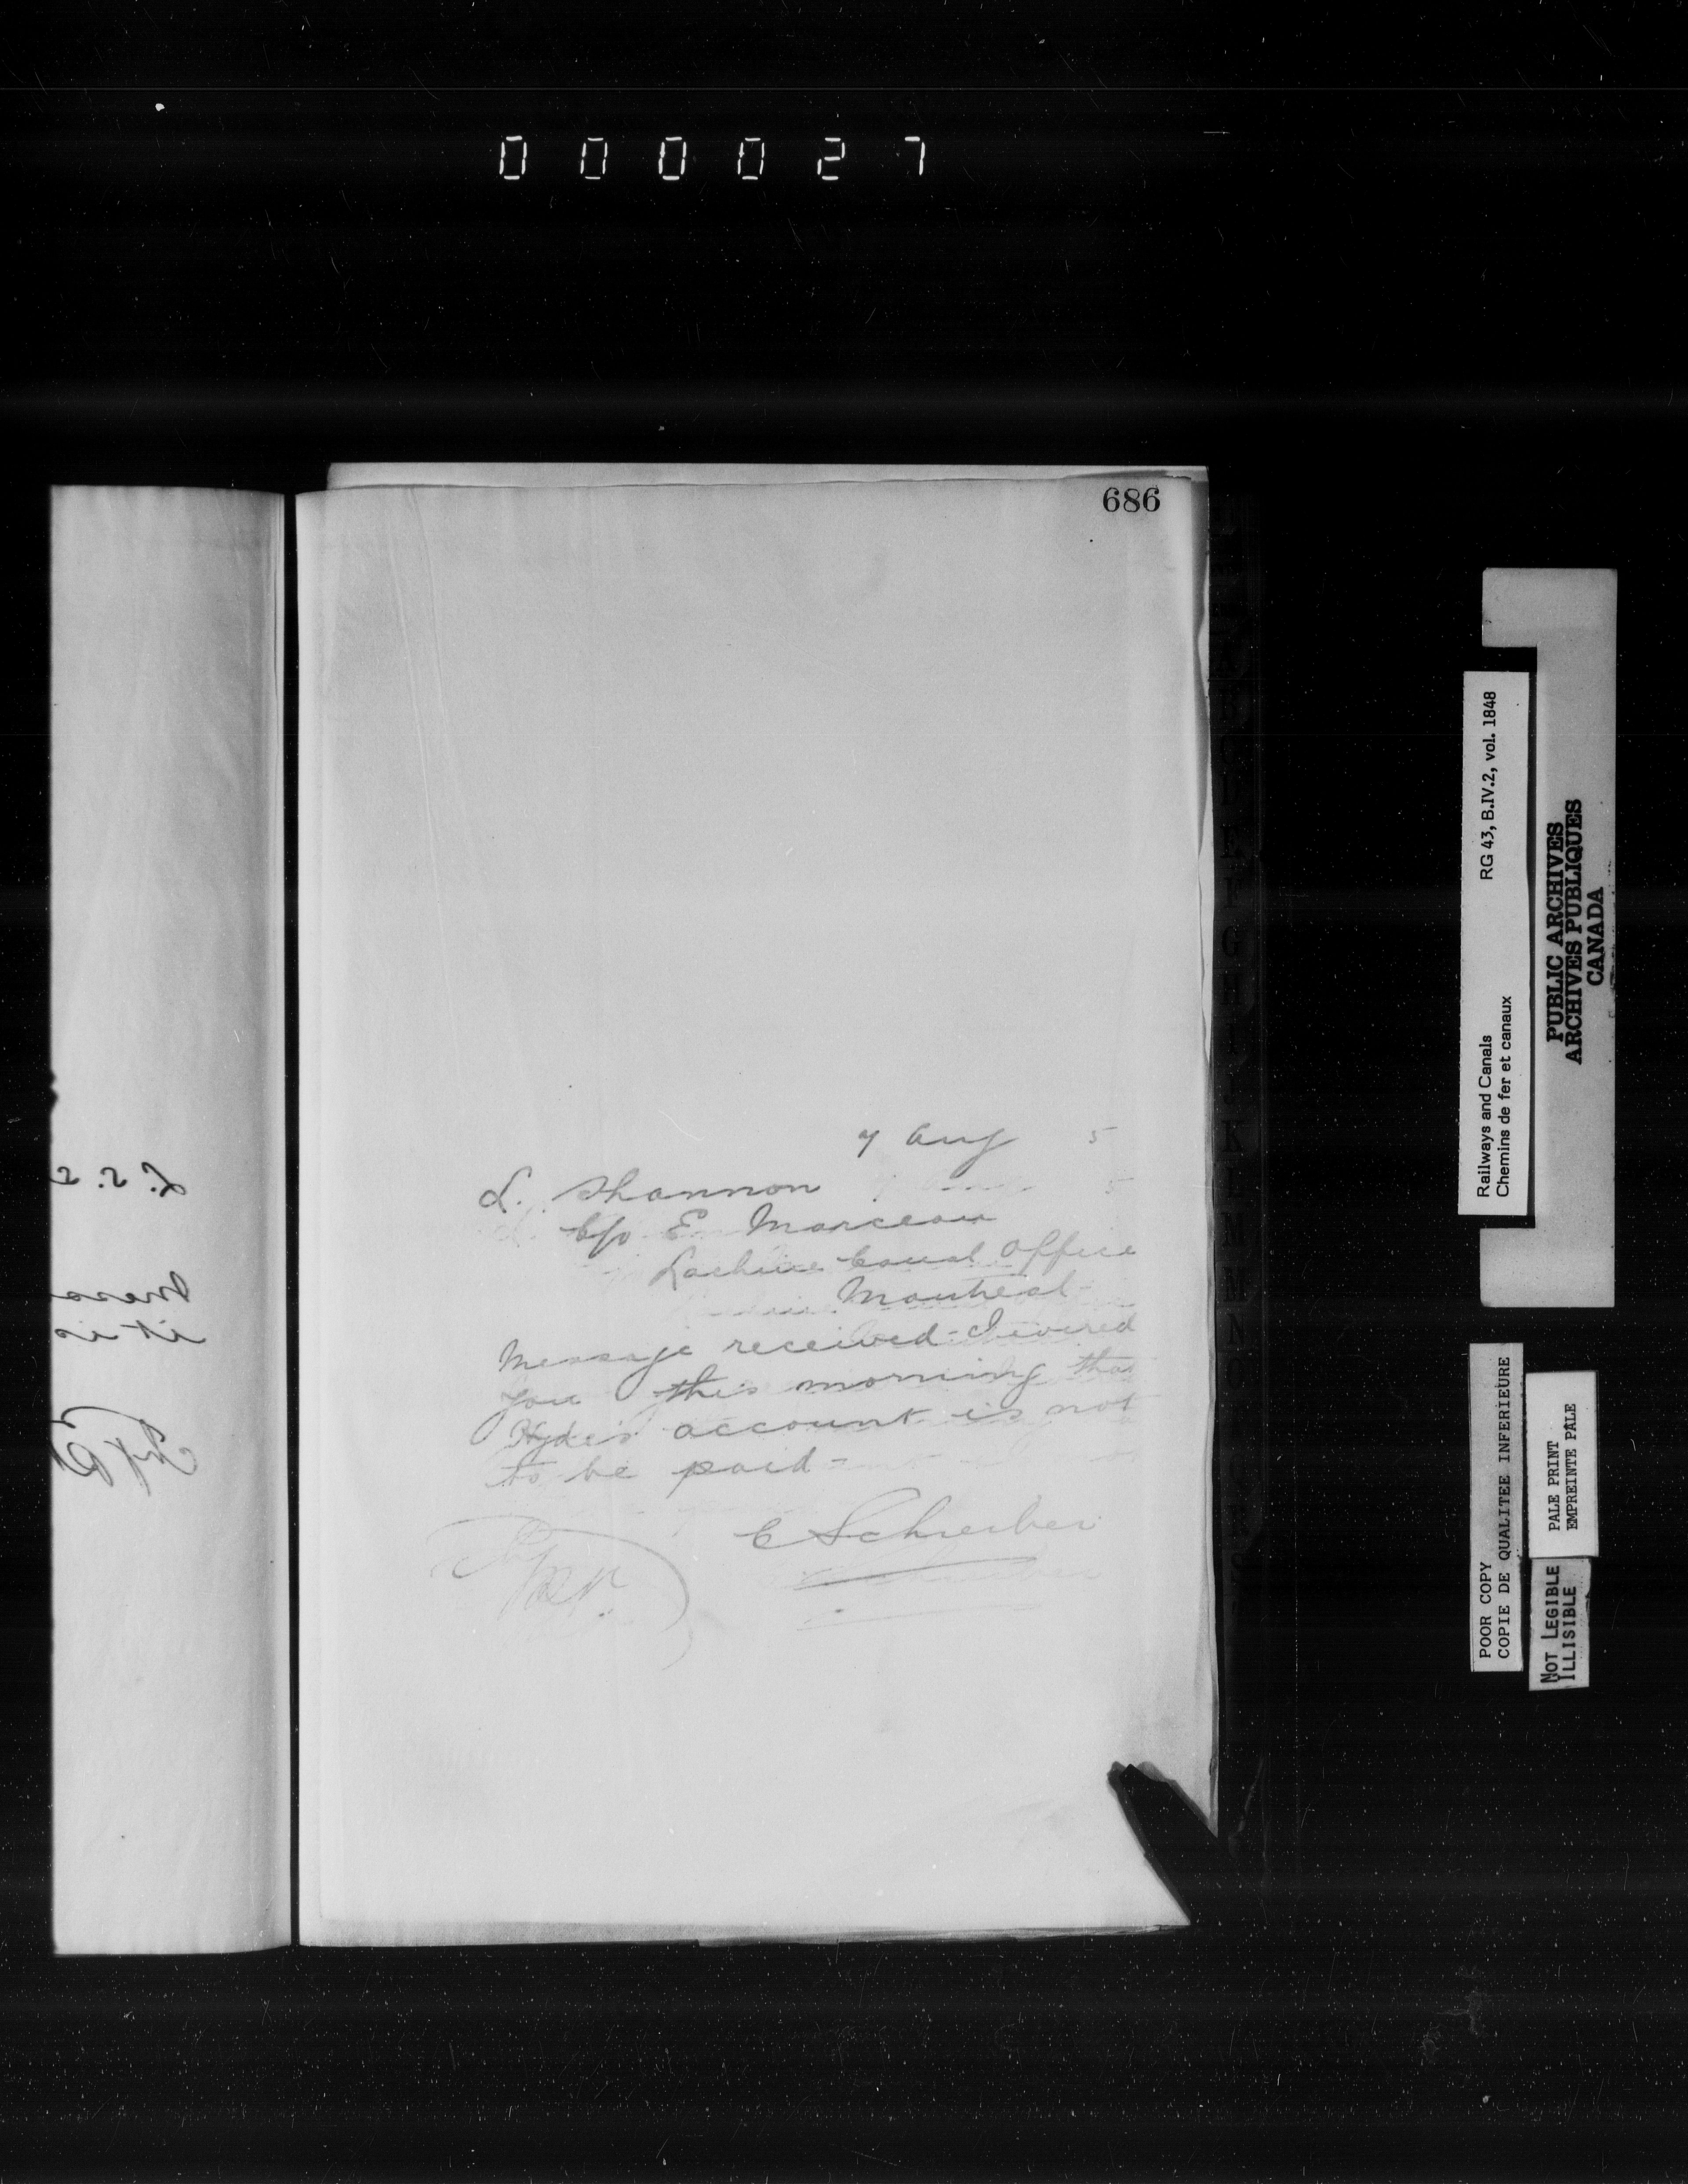 000027
686
7 Aug 5
L. Shannon
C/o E Marceau
Lachine Canal Office
Montreal
Message received - I wired
you this morning that
Hyde's account is not
to be paid -
C Schreiber
Railways and Canals RG 43, B.IV.2, vol. 1848
Chemins de fer et canaux
PUBLIC ARCHIVES
ARCHIVES PUBLIQUES
CANADA
POOR COPY
COPIE DE QUALITEE INFERIEURE
PALE PRINT
EMPREINTE PÂLE
NOT LEGIBLE
ILLISIBLE